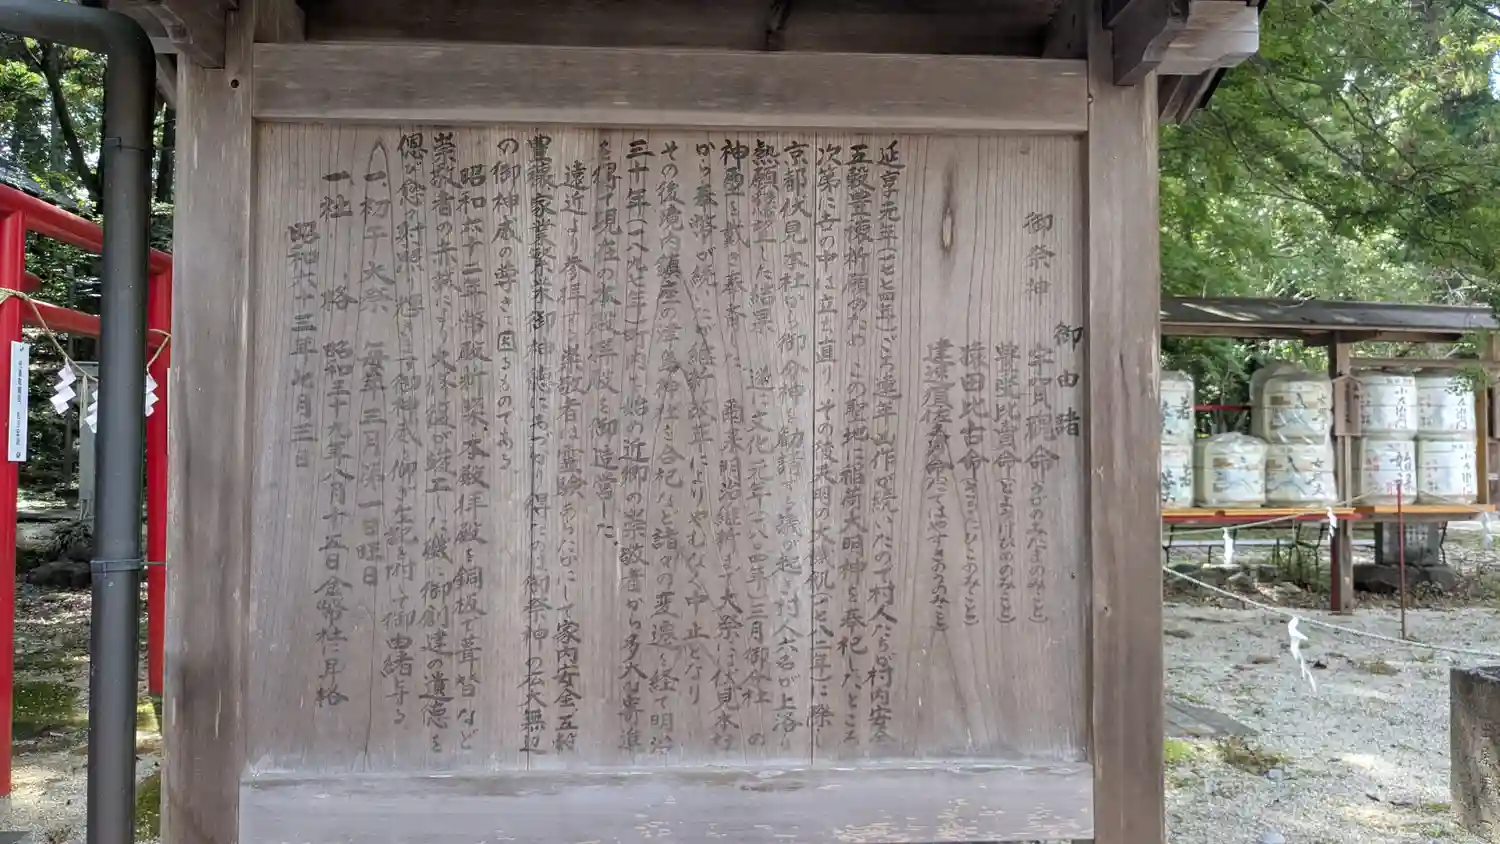 御由緒
御祭神
宇賀魂命(うがのみたまのみこと)
豊受比賣命(とようけひめのみこと)
猿田比古命(さるたひこのみこと)
建速須佐之男命(たてはやすさのうのみこと)
延享元年(一七四四年)ごろ連年不作が続いたので村人たちが村内安全
五穀豊穣祈願のため、この聖地に稲荷大明神を奉祀したところ
次第に苦の中に立ち直り、その後天明の大飢饉(一七八二年)に際し
京都伏見本社から御分神を勧請する議が起き村人六名が上洛し
熱願懇望した結果、遂に文化元年(一八〇四年)三月御本社の
神璽を戴き奉斎した。爾来明治維新まで大祭には伏見本社
から奉幣が続いたが維新改革によりやむなく中止となり
その後境内鎮座の津島神社を合祀など諸々の変遷を経て明治
三十年(一八九七年)町内を始め近郷の崇敬者から多大な寄進
を得て現在の本殿拝殿を御造営した。
遠近より参拝する崇敬者は霊験あらたかにして家内安全、五穀
豊穣、家業繁栄、御神徳にあづかり得たのは御祭神の広大無辺
の御神威の尊さに因るものである
昭和六十二年幣殿新築本殿拝殿を銅板で葺替など
崇敬者の赤誠により大修復が竣工した機に御創建の遺徳を
一、初午大祭 毎年三月第一日曜日
一、社格 昭和三十九年八月十五日金幣社に昇格
昭和六十三年七月三日